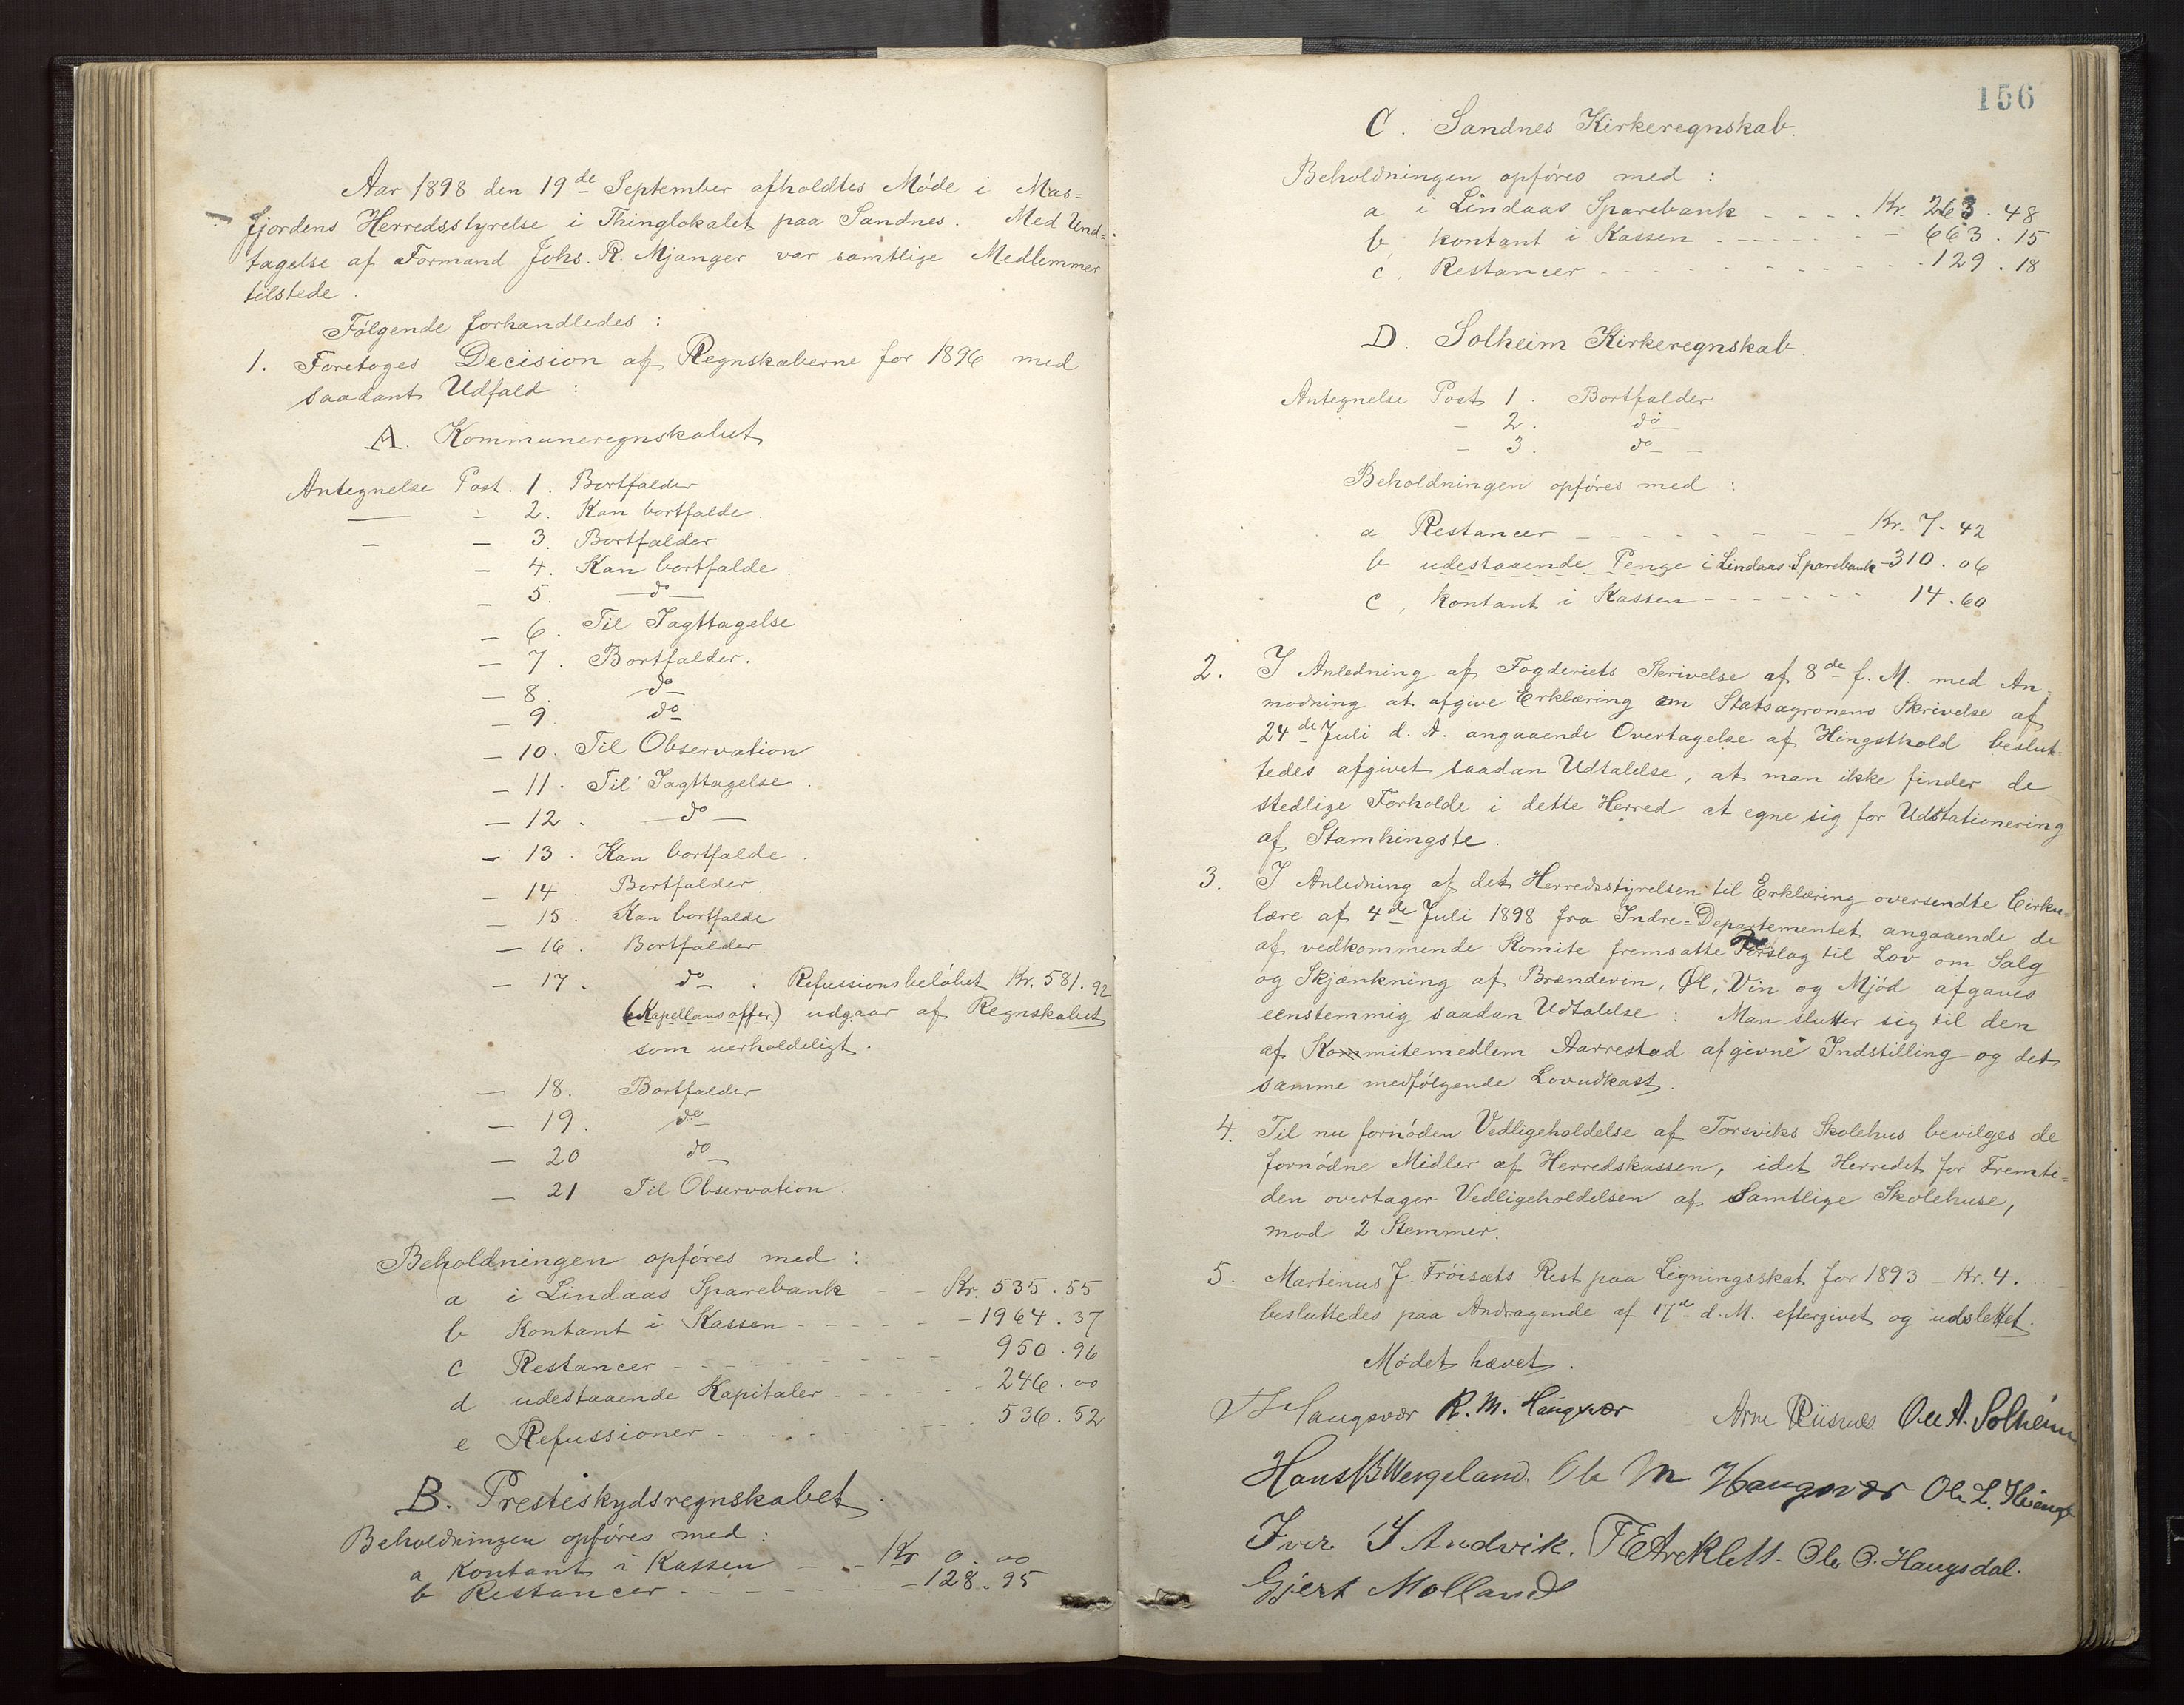 Aar 1898 den 19de September afholdtes Møde i Mas=
fjordens Herredsstyrelse i Thinglokalet paa Sandnes. Med Und=
tagelse af Formand Johs. R. Mjanger var samtlige Medlemmer
tilstede.
Følgende forhandledes:
1. Foretoges Decision af Regnskaberne for 1896 med
saadant Udfald:
A. Kommuneregnskabet
Antegnelse Post. 1. Bortfalder
— - 2. Kan bortfalde.
- - 3. Bortfalder
- 4. Kan bortfalde.
- 5. do
- 6. Til Iagttagelse
- 7. Bortfalder.
- 8. do
- 9 do
- 10. Til Observation
- 11. Til Iagttagelse.
- 12. do
- 13. Kan bortfalde.
- 14. Bortfalder.
- 15. Kan bortfalde
- 16. Bortfalder.
- 17. do. Refussionsbeløbet Kr. 581.92
(Kapellansoffer) udgaar af Regnskabet
som uerholdeligt.
- 18. Bortfalder
- 19. do
- 20 do
- 21 Til Observation.
Beholdningen opføres med:
a i Lindaas Sparebank - - Kr. 535.55
b Kontant i Kassen - - - - - 1964.37
c Restancer - - - - - - - 950.96
d udestaaende Kapitaler - - - - - 246.00
e Refussioner - - - - - - - 536.52
B. Presteskydsregnskabet.
Beholdningen opføres med:
a Kontant i Kassen - - Kr 0.00
b Restancer - - - - - - 128.95
156
C. Sandnes Kirkeregnskab.
Beholdningen opføres med:
a i Lindaas Sparebank - - - - Kr. 263.48
b, kontant i Kassen - - - - - - - 663.15
c, Restancer - - - - - - - - - 129.18
D. Solheim Kirkeregnskab.
Antegnelse Post 1. Bortfalder
- 2. do
- 3. do
Beholdningen opføres med:
a Restancer - - - - - - - Kr. 7.42
b udestaaende Penge i Lindaas Sparebank - 310.06
c, kontant i Kassen - - - - - - - 14.60
2. I Anledning af Fogderiets Skrivelse af 8de f. M. med An-
modning at afgive Erklæring om Statsagronens Skrivelse af
24de Juli d. A. angaaende Overtagelse af Hingsthold beslut-
tedes afgivet saadan Udtalelse, at man ikke finder de
stedlige Forholde i dette Herred at egne sig for Udstationering
af Stamhingste.
3. I Anledning af det Herredsstyrelsen til Erklæring oversendte Cirku-
lære af 4de Juli 1898 fra Indre=Departementet angaaende de
af vedkommende Komite fremsatte Forslag til Lov om Salg
og Skjænkning af Brændevin, Øl, Vin og Mjød afgaves
eenstemmig saadan Udtalelse: Man slutter sig til den
af Kommitemedlem Aarrestad afgivne Indstilling og det
samme medfølgende Lovudkast.
4. Til nu fornøden Vedligeholdelse af Torsviks Skolehus bevilges de
fornødne Midler af Herredskassen, idet Herredet for Fremti=
den overtager Vedligeholdelsen af Samtlige Skolehuse,
mod 2 Stemmer.
5. Martinus J. Frøisets Rest paa Ligningsskat for 1893 - Kr. 4.
besluttedes paa Andragende af 17de d. M. eftergivet og udslettet.
Mødet hævet.
Haugsvær R. M. Haugsvær Arne Riisnes Ole A. Solheim
Hans B Wergeland Ole M Haugsvær Ole L.
Iver I Andvik. Ole O. Haugsdal.
Gjert Molland